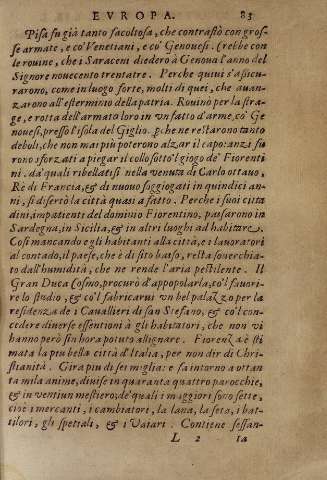 EVROPA. 83
Pisa fu già tanto facoltosa, che contrastò con gros-
se armate, e co' Venetiani, e co' Genouesi. Crebbe con
le rouine, che i Saraceni diedero à Genoua l'anno del
Signore nouecento trentatre. Perche quiui s'assicu-
rarono, come in luogo forte, molti di quei, che auan-
zarono all'esterminio della patria. Rouinò per la stra-
ge, e rotta dell'armato loro in vn fatto d'arme, co' Ge
nouesi, presso l'Isola del Giglio. perche ne restarono tanto
deboli, che non mai più poterono alzar il capo: anzi fu
rono sforzati a piegar il collo sotto'l giogo de' Fiorenti
ni. da' quali ribellatisi nella venuta di Carlo ottauo,
Re di Francia, & di nuouo soggiogati in quindici an-
ni, si disertò la città quasi a fatto. Perche i suoi citta
dini, impatienti del dominio Fiorentino, passarono in
Sardegna, in Sicilia, & in altri luoghi ad habitare.
Così mancando egli habitanti alla città, e i lauoratori
al contado, il paese, che è di sito basso, resta souerchia-
to dall'humidità, che ne rende l'aria pestilente. Il
Gran Duca Cosmo, procurò d'appopolarla, co'l fauori-
re lo studio, & co'l fabricarui vn bel palazzo per la
residenza de i Cauallieri di san Stefano, & co'l con-
cedere diuerse essentioni à gli habitatori, che non vi
hanno però sin hora potuto allignare. Fiorenza è sti
mata la più bella città d'Italia, per non dir di Chri-
stianità. Gira più di sei miglia: e fa intorno a ottan
ta mila anime, diuise in quaranta quattro parocchie,
& in ventiun mestiero; de' quali i maggiori sono sette,
cioè i mercanti, i cambiatori, la lana, la seta, i bat-
tilori, gli spetiali, & i Vaiari. Contiene sessan-
L 2 ta